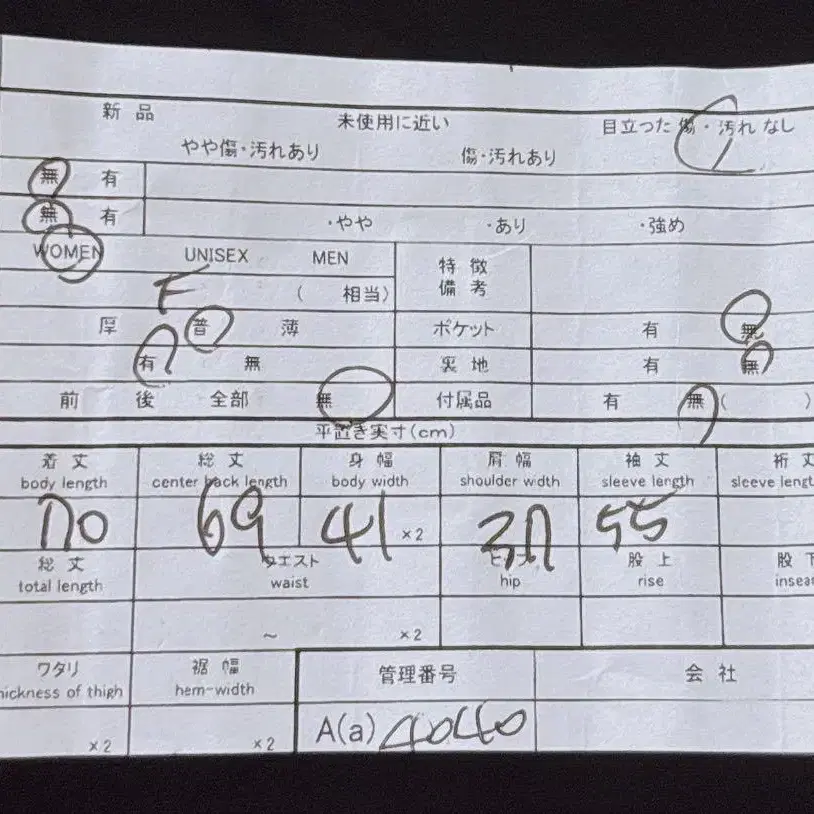 新品 未使用に近い 目立った傷・汚れなし
やや傷・汚れあり 傷・汚れあり
無 有
無 有 ・やや ・あり ・強め
WOMEN UNISEX MEN 特徴
備考
F ( 相当)
厚 普 薄 ポケット 有 無
有 無 裏地 有 無
前 後 全部 無 付属品 有 無 ( )
平置き実寸(cm)
着丈 総丈 身幅 肩幅 袖丈 裄丈
body length center back length body width shoulder width sleeve length sleeve lengt
70 69 41 ×2 37 55
総丈 ウエスト ヒップ 股上 股下
total length waist hip rise insea
~ ×2
ワタリ 裾幅 管理番号 会社
hickness of thigh hem-width
×2 ×2 A(a) 4040